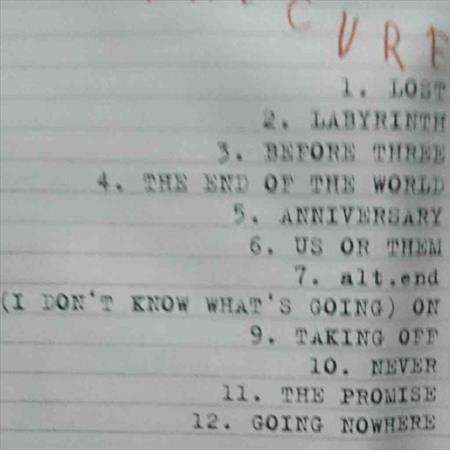 CURE
1. LOST
2. LABYRINTH
3. BEFORE THREE
4. THE END OF THE WORLD
5. ANNIVERSARY
6. US OR THEM
7. alt.end
(I DON'T KNOW WHAT'S GOING) ON
9. TAKING OFF
10. NEVER
11. THE PROMISE
12. GOING NOWHERE